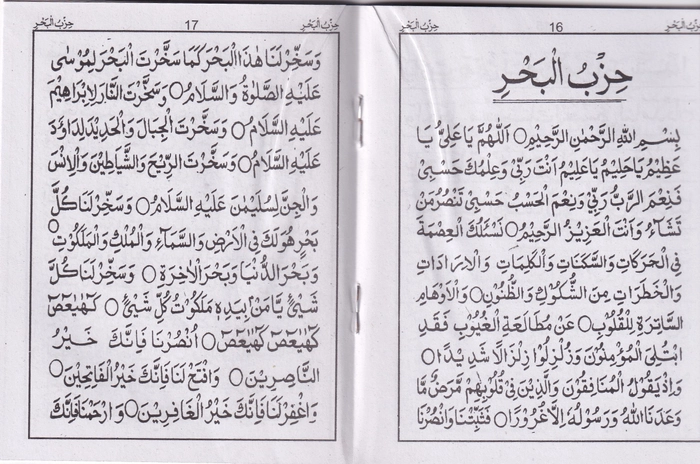 حِزْبُ الْبَحْرِ
16
حِزْبُ الْبَحْر
حِزْبُ الْبَحْرِ
بِسْمِ اللهِ الرَّحْمٰنِ الرَّحِيْمِ○ اَللّٰهُمَّ يَا عَلِىُّ يَا
عَظِيْمُ يَا حَلِيْمُ يَا عَلِيْمُ اَنْتَ رَبِّىْ وَعِلْمُكَ حَسْبِىْ
فَنِعْمَ الرَّبُّ رَبِّىْ وَنِعْمَ الْحَسْبُ حَسْبِىْ تَنْصُرُ مَنْ
تَشَآءُ وَاَنْتَ الْعَزِيْزُ الرَّحِيْمُ○ نَسْئَلُكَ الْعِصْمَةَ
فِى الْحَرَكَاتِ وَالسَّكَنَاتِ وَالْكَلِمَاتِ وَالْاِرَادَاتِ
وَالْخَطَرَاتِ مِنَ الشُّكُوْكِ وَالظُّنُوْنِ○ وَالْاَوْهَامِ
السَّاتِرَةِ لِلْقُلُوْبِ○ عَنْ مُطَالَعَةِ الْغُيُوْبِ فَقَدِ
ابْتُلِىَ الْمُؤْمِنُوْنَ وَزُلْزِلُوْا زِلْزَالًا شَدِيْدًا○
وَاِذْ يَقُوْلُ الْمُنَافِقُوْنَ وَالَّذِيْنَ فِىْ قُلُوْبِهِمْ مَّرَضٌ مَّا
وَعَدَنَا اللهُ وَرَسُوْلُهٗ اِلَّا غُرُوْرًا○ فَثَبِّتْنَا وَانْصُرْنَا
حِزْبُ الْبَحْر
17
حِزْبُ الْبَحْر
وَسَخِّرْ لَنَا هٰذَا الْبَحْرَ كَمَا سَخَّرْتَ الْبَحْرَ لِمُوْسٰى
عَلَيْهِ الصَّلٰوةُ وَالسَّلَامُ○ وَسَخَّرْتَ النَّارَ لِاِبْرَاهِيْمَ
عَلَيْهِ السَّلَامُ○ وَسَخَّرْتَ الْجِبَالَ وَالْحَدِيْدَ لِدَاوٗدَ
عَلَيْهِ السَّلَامُ○ وَسَخَّرْتَ الرِّيْحَ وَالشَّيَاطِيْنَ وَالْاِنْسَ
وَالْجِنَّ لِسُلَيْمٰنَ عَلَيْهِ السَّلَامُ○ وَسَخِّرْ لَنَا كُلَّ
بَحْرٍ هُوَ لَكَ فِى الْاَرْضِ وَالسَّمَآءِ وَالْمُلْكِ وَالْمَلَكُوْتِ○
وَبَحْرَ الدُّنْيَا وَبَحْرَ الْاٰخِرَةِ○ وَسَخِّرْ لَنَا كُلَّ
شَىْءٍ يَّا مَنْۢ بِيَدِهٖ مَلَكُوْتُ كُلِّ شَىْءٍ○ كٓهٰيٰعٓصٓ
كٓهٰيٰعٓصٓ كٓهٰيٰعٓصٓ○ اُنْصُرْنَا فَاِنَّكَ خَيْرُ
النَّاصِرِيْنَ○ وَافْتَحْ لَنَا فَاِنَّكَ خَيْرُ الْفَاتِحِيْنَ○
وَاغْفِرْ لَنَا فَاِنَّكَ خَيْرُ الْغَافِرِيْنَ○ وَارْحَمْنَا فَاِنَّكَ